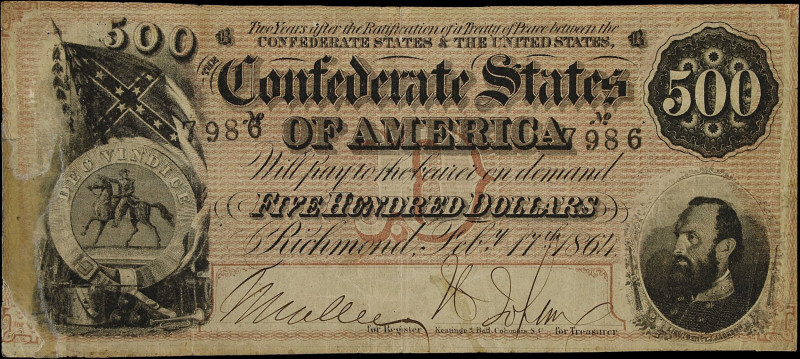 500
Two Years after the Ratification of a Treaty of Peace between the
CONFEDERATE STATES & THE UNITED STATES,
B B
THE
Confederate States
500
No 7986
No 7986
OF AMERICA
Will pay to the bearer on demand
FIVE HUNDRED DOLLARS
Richmond, Feby. 17th 1864
DEO VINDICE
D
for Register
Keatinge & Ball, Columbia, S.C.
for Treasurer